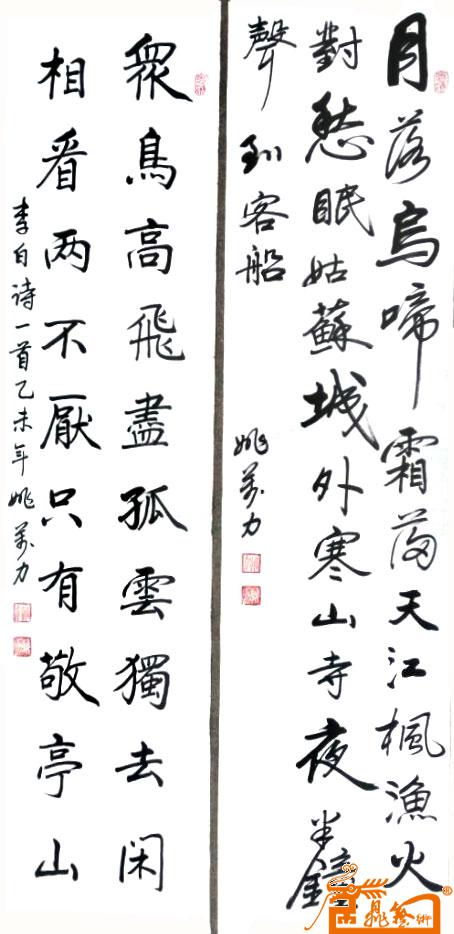 月落烏啼霜滿天江楓漁火
對愁眠姑蘇城外寒山寺夜半鐘
聲到客船
姚萬力
衆鳥高飛盡孤雲獨去闲
相看两不厭只有敬亭山
李白诗一首乙未年姚萬力